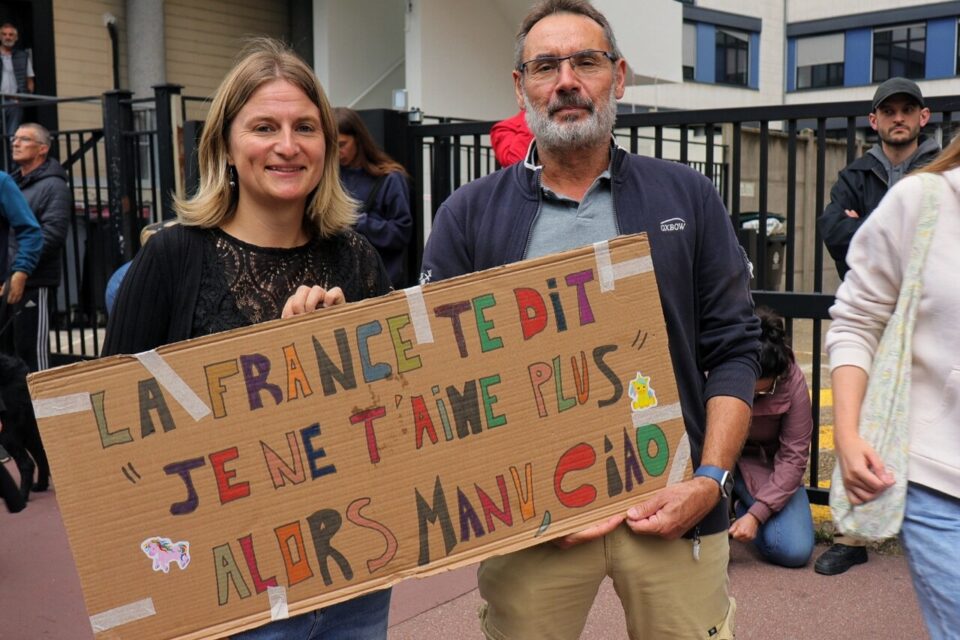 LA FRANCE TE DIT
"JE NE T'AIME PLUS"
ALORS MANU, CIAO
OXBOW